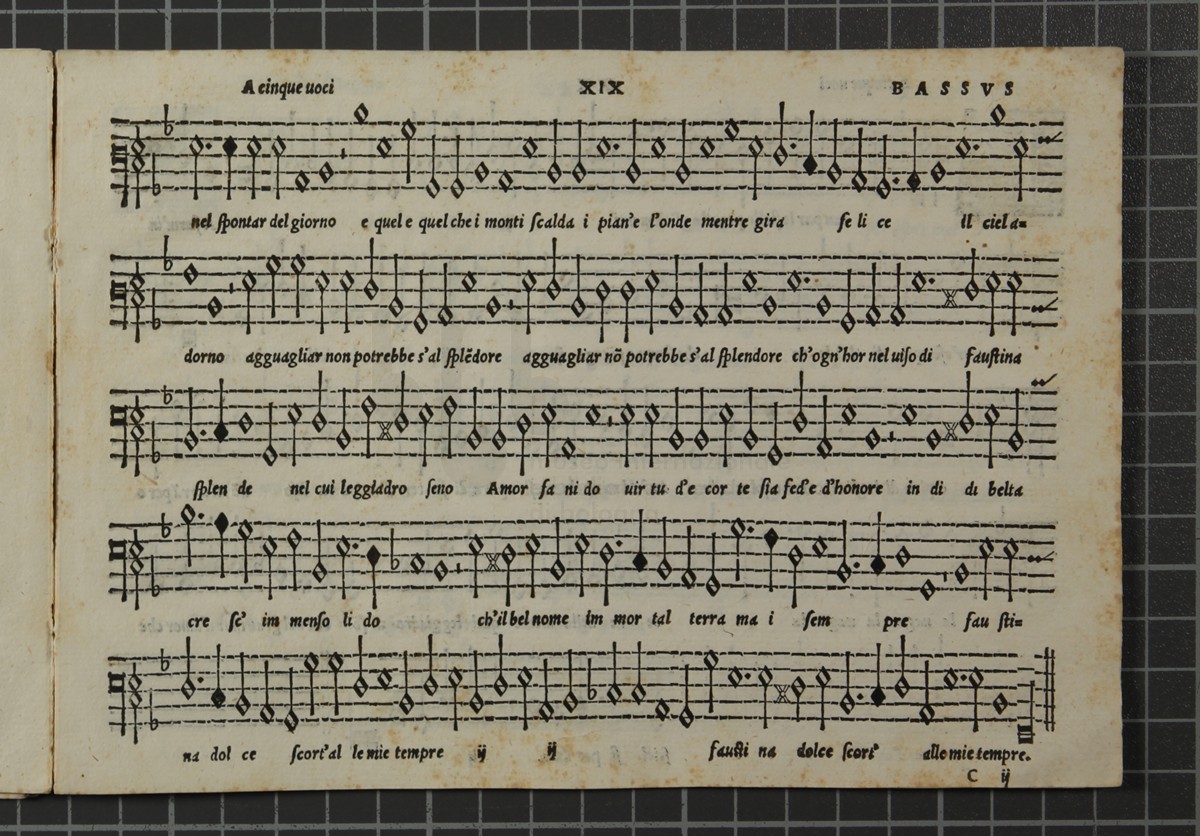 A cinque uoci XIX BASSVS
nel ſpontar del giorno e quel e quel che i monti ſcalda i pian'e l'onde mentre gira fe li ce il ciel a=
dorno agguagliar non potrebbe s'al ſplēdore agguagliar nō potrebbe s'al ſplendore ch'ogn'hor nel uiſo di fauſtina
ſplen de nel cui leggiadro ſeno Amor fa ni do uir tu d'e cor te ſia fed'e d'honore in di di belta
cre ſc' im menſo li do ch'il bel nome im mor tal terra ma i ſem pre fau ſti=
na dol ce ſcort'al le mie tempre ij ij fauſti na dolce ſcort' alle mie tempre.
C ij